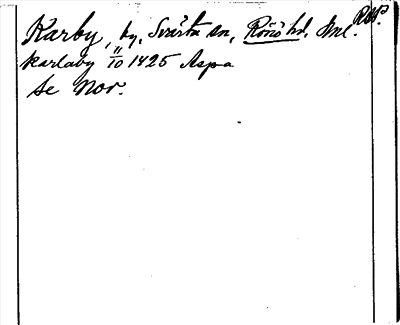 Karby, by, Svärta sn, Rönö hd, Sml.
Karlaby 11/10 1425 Aspa
Se Nor.